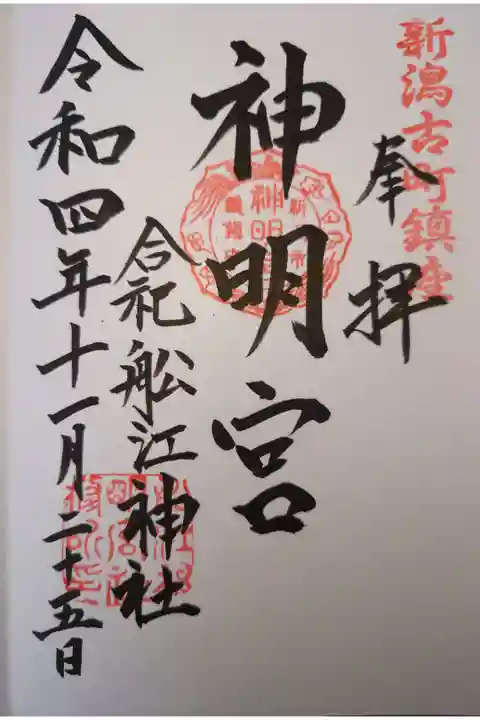 新潟古町鎮座
奉拝
神明宮
合祀舩江神社
令和四年十一月二十五日